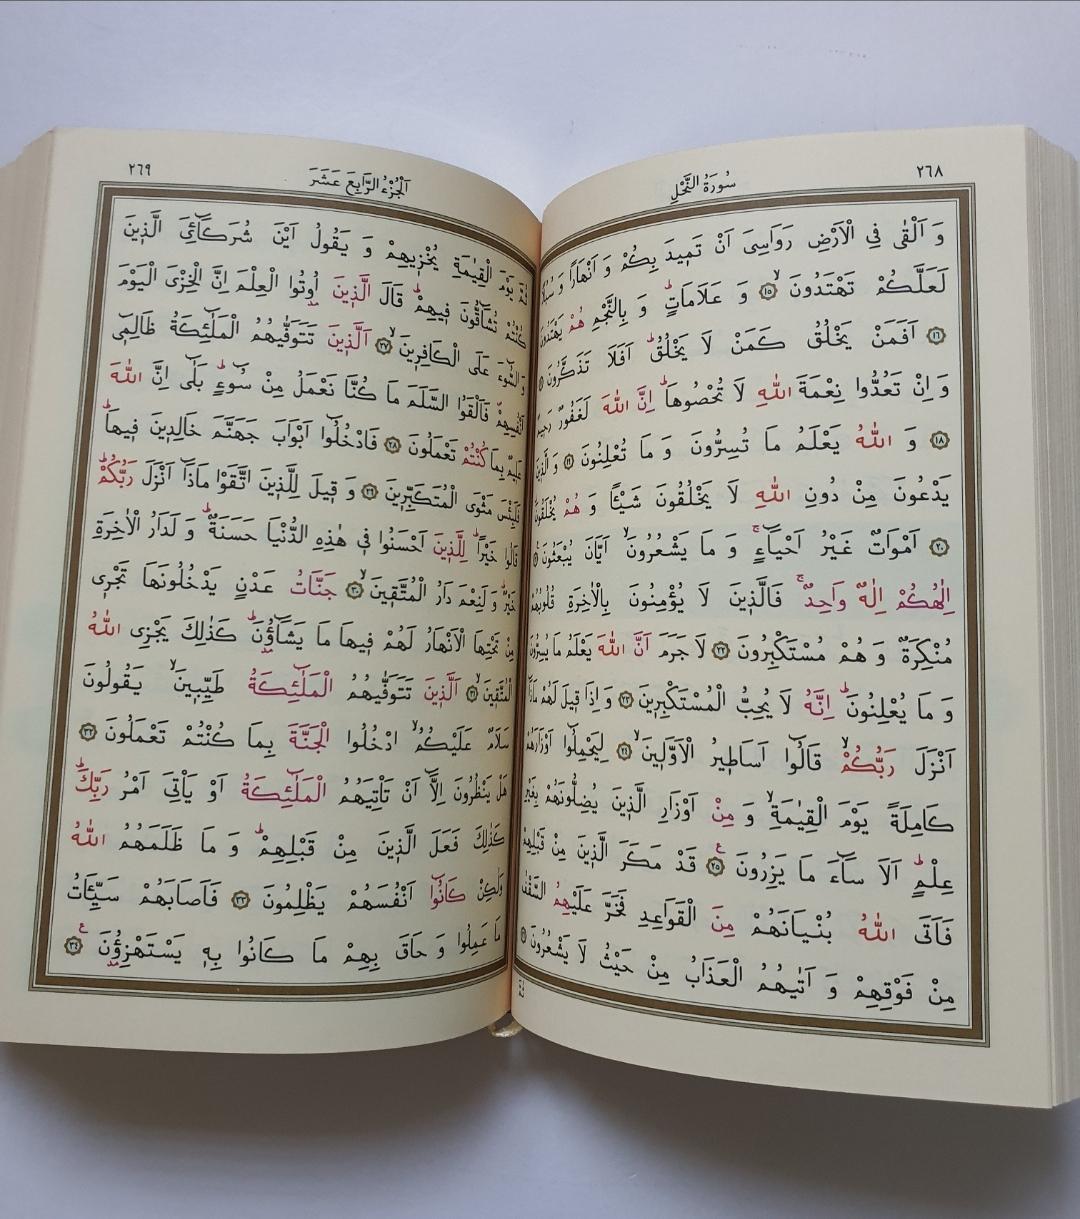 ٢٦٨
سُورَةُ النَّحْلِ
وَ اَلْقٰى فِي الْاَرْضِ رَوَاسِيَ اَنْ تَمٖيدَ بِكُمْ وَ اَنْهَارًا وَ سُبُلًا
لَعَلَّكُمْ تَهْتَدُونَ ۙ ﴿١٥﴾ وَ عَلَامَاتٍۜ وَ بِالنَّجْمِ هُمْ يَهْتَدُونَ
﴿١٦﴾ اَفَمَنْ يَخْلُقُ كَمَنْ لَا يَخْلُقُۜ اَفَلَا تَذَكَّرُونَ
وَ اِنْ تَعُدُّوا نِعْمَةَ اللّٰهِ لَا تُحْصُوهَاۜ اِنَّ اللّٰهَ لَغَفُورٌ رَحٖيمٌ
﴿١٨﴾ وَ اللّٰهُ يَعْلَمُ مَا تُسِرُّونَ وَ مَا تُعْلِنُونَ ﴿١٩﴾ وَ الَّذٖينَ
يَدْعُونَ مِنْ دُونِ اللّٰهِ لَا يَخْلُقُونَ شَيْئًا وَ هُمْ يُخْلَقُونَ
﴿٢٠﴾ اَمْوَاتٌ غَيْرُ اَحْيَٓاءٍۚ وَ مَا يَشْعُرُونَۙ اَيَّانَ يُبْعَثُونَ
اِلٰهُكُمْ اِلٰهٌ وَاحِدٌۚ فَالَّذٖينَ لَا يُؤْمِنُونَ بِالْاٰخِرَةِ قُلُوبُهُمْ
مُنْكِرَةٌ وَ هُمْ مُسْتَكْبِرُونَ ﴿٢٢﴾ لَا جَرَمَ اَنَّ اللّٰهَ يَعْلَمُ مَا يُسِرُّونَ
وَ مَا يُعْلِنُونَۜ اِنَّهُ لَا يُحِبُّ الْمُسْتَكْبِرٖينَ ﴿٢٣﴾ وَ اِذَا قٖيلَ لَهُمْ مَاذَٓا
اَنْزَلَ رَبُّكُمْۙ قَالُٓوا اَسَاطٖيرُ الْاَوَّلٖينَۙ ﴿٢٤﴾ لِيَحْمِلُٓوا اَوْزَارَهُمْ
كَامِلَةً يَوْمَ الْقِيٰمَةِۙ وَ مِنْ اَوْزَارِ الَّذٖينَ يُضِلُّونَهُمْ بِغَيْرِ
عِلْمٍۜ اَلَا سَٓاءَ مَا يَزِرُونَ ﴿٢٥﴾ قَدْ مَكَرَ الَّذٖينَ مِنْ قَبْلِهِمْ
فَاَتَى اللّٰهُ بُنْيَانَهُمْ مِنَ الْقَوَاعِدِ فَخَرَّ عَلَيْهِمُ السَّقْفُ
مِنْ فَوْقِهِمْ وَ اَتٰيهُمُ الْعَذَابُ مِنْ حَيْثُ لَا يَشْعُرُونَ
٢٦٩
اَلْجُزْءُ الرَّابِعَ عَشَرَ
ثُمَّ يَوْمَ الْقِيٰمَةِ يُخْزٖيهِمْ وَ يَقُولُ اَيْنَ شُرَكَٓائِيَ الَّذٖينَ
كُنْتُمْ تُشَٓاقُّونَ فٖيهِمْۜ قَالَ الَّذٖينَ اُو۫تُوا الْعِلْمَ اِنَّ الْخِزْيَ الْيَوْمَ
وَ السُّٓوءَ عَلَى الْكَافِرٖينَۙ ﴿٢٧﴾ اَلَّذٖينَ تَتَوَفّٰيهُمُ الْمَلٰٓئِكَةُ ظَالِمٖٓي
اَنْفُسِهِمْ فَاَلْقَوُا السَّلَمَ مَا كُنَّا نَعْمَلُ مِنْ سُٓوءٍۜ بَلٰٓى اِنَّ اللّٰهَ
عَلٖيمٌ بِمَا كُنْتُمْ تَعْمَلُونَ ﴿٢٨﴾ فَادْخُلُٓوا اَبْوَابَ جَهَنَّمَ خَالِدٖينَ فٖيهَاۜ
فَلَبِئْسَ مَثْوَى الْمُتَكَبِّرٖينَ ﴿٢٩﴾ وَ قٖيلَ لِلَّذٖينَ اتَّقَوْا مَاذَٓا اَنْزَلَ رَبُّكُمْۜ
قَالُوا خَيْرًاۜ لِلَّذٖينَ اَحْسَنُوا فٖي هٰذِهِ الدُّنْيَا حَسَنَةٌۜ وَ لَدَارُ الْاٰخِرَةِ
خَيْرٌۜ وَ لَنِعْمَ دَارُ الْمُتَّقٖينَۙ ﴿٣٠﴾ جَنَّاتُ عَدْنٍ يَدْخُلُونَهَا تَجْرٖي
مِنْ تَحْتِهَا الْاَنْهَارُ لَهُمْ فٖيهَا مَا يَشَٓاؤُ۫نَۜ كَذٰلِكَ يَجْزِي اللّٰهُ
الْمُتَّقٖينَۙ ﴿٣١﴾ اَلَّذٖينَ تَتَوَفّٰيهُمُ الْمَلٰٓئِكَةُ طَيِّبٖينَۙ يَقُولُونَ
سَلَامٌ عَلَيْكُمُۙ ادْخُلُوا الْجَنَّةَ بِمَا كُنْتُمْ تَعْمَلُونَ ﴿٣٢﴾
هَلْ يَنْظُرُونَ اِلَّٓا اَنْ تَاْتِيَهُمُ الْمَلٰٓئِكَةُ اَوْ يَاْتِيَ اَمْرُ رَبِّكَۜ
كَذٰلِكَ فَعَلَ الَّذٖينَ مِنْ قَبْلِهِمْۜ وَ مَا ظَلَمَهُمُ اللّٰهُ
وَلٰكِنْ كَانُٓوا اَنْفُسَهُمْ يَظْلِمُونَ ﴿٣٣﴾ فَاَصَابَهُمْ سَيِّـَٔاتُ
مَا عَمِلُوا وَ حَاقَ بِهِمْ مَا كَانُوا بِهٖ يَسْتَهْزِؤُ۫نَ ﴿٣٤﴾